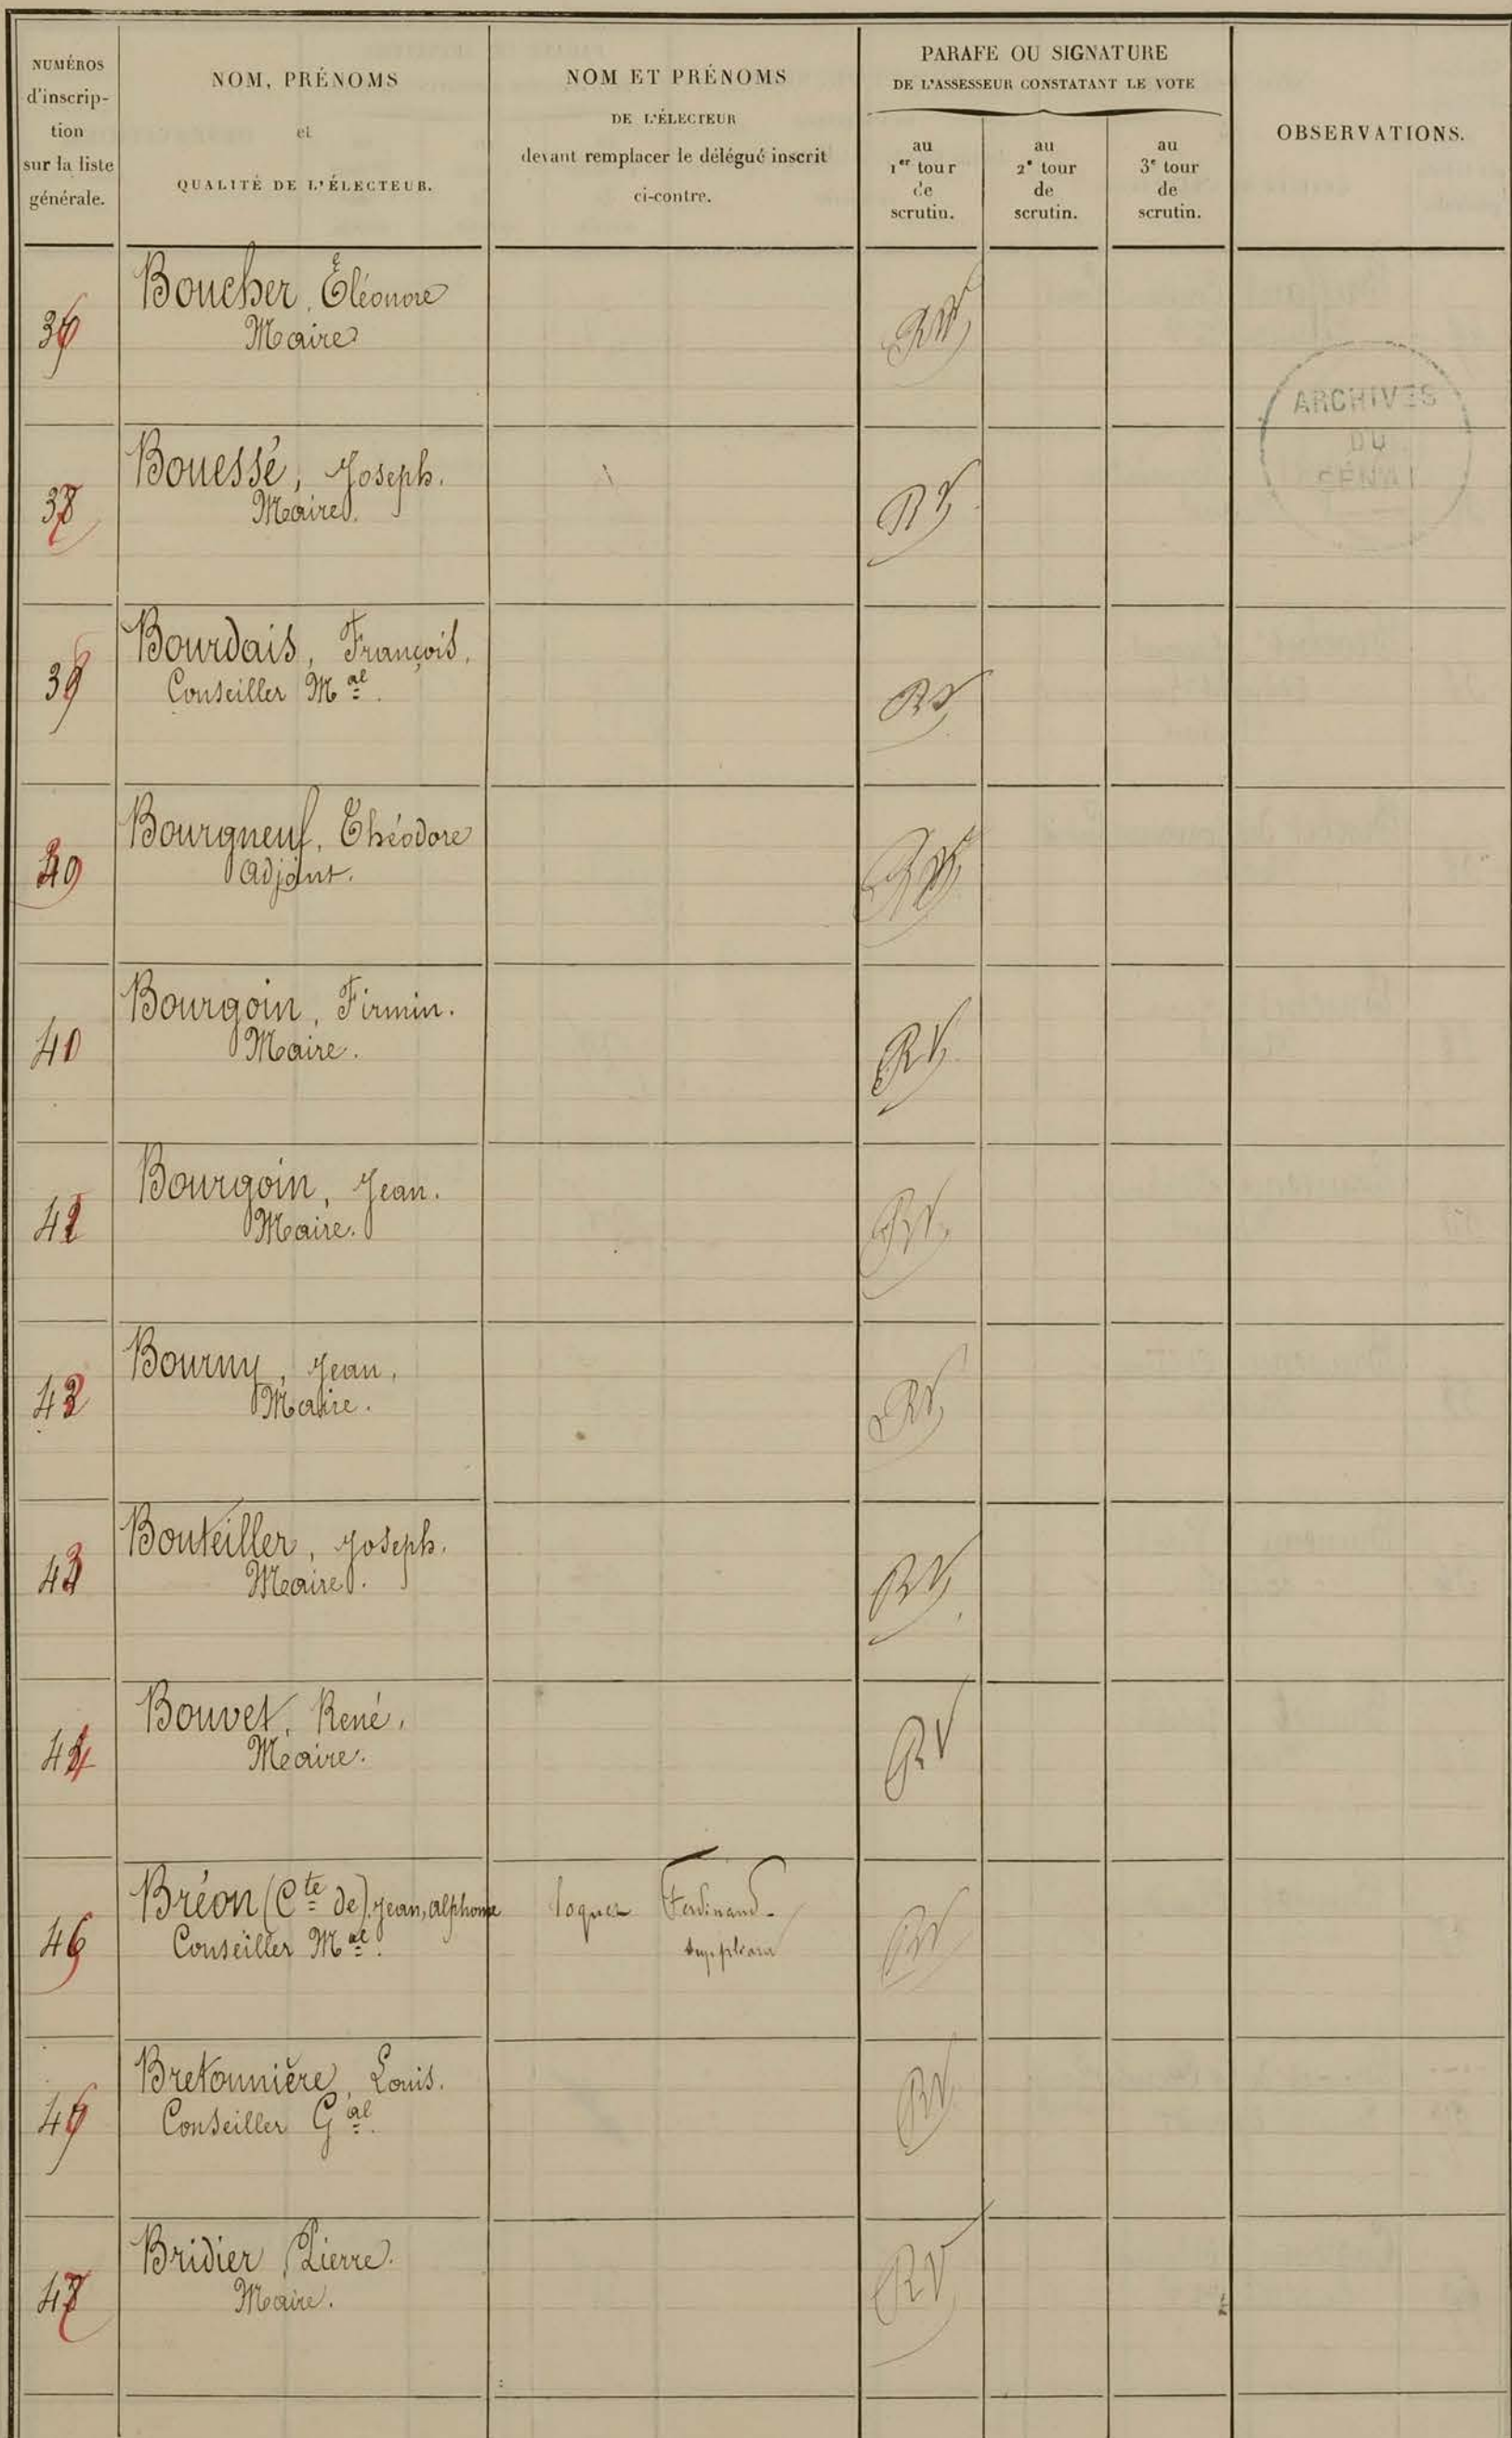 NUMÉROS
d'inscrip-
tion
sur la liste
générale.
NOM, PRÉNOMS
et
QUALITÉ DE L'ÉLECTEUR.
NOM ET PRÉNOMS
DE L'ÉLECTEUR
devant remplacer le délégué inscrit
ci-contre.
PARAFE OU SIGNATURE
DE L'ASSESSEUR CONSTATANT LE VOTE
au
1er tour
de
scrutin.
au
2e tour
de
scrutin.
au
3e tour
de
scrutin.
OBSERVATIONS.
36
Boucher, Éléonore
Maire
RV
ARCHIVES
DU
SÉNAT
37
Bouessé, Joseph.
Maire.
RV
38
Bourdais, François,
Conseiller Mal.
RV
39
Bourgneuf, Théodore
Adjoint.
RV
40
Bourgoin, Firmin.
Maire.
RV
41
Bourgoin, Jean.
Maire.
RV
42
Bourny, Jean,
Maire.
RV
43
Bouteiller, Joseph.
Maire.
RV
44
Bouvet, René,
Maire.
RV
45
Bréon (Cte de) Jean, Alphonse
Conseiller Mal.
Ferdinand
RV
46
Bretonnière, Louis.
Conseiller Gal.
RV
47
Bridier Pierre.
Maire.
RV